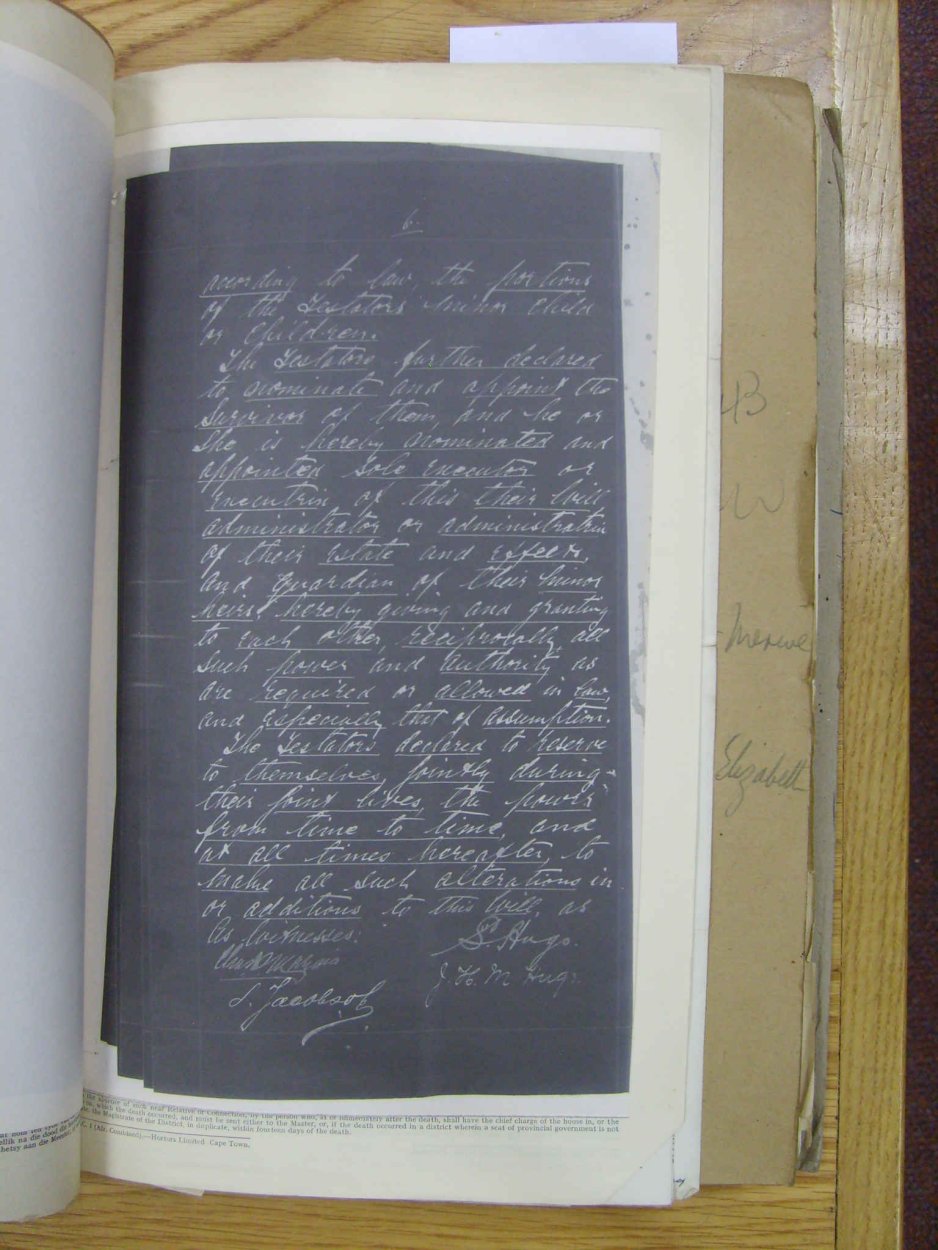 6.
according to law, the portions
of the Testators' minor child
or children.
The Testators further declared
to nominate and appoint the
Survivor of them, and he or
She is hereby nominated and
appointed Sole Executor or
Executrix of this their Will
administrator or administratrix
of their Estate and Effects,
and Guardian of their minor
heirs, hereby giving and granting
to each other, reciprocally, all
such power and authority as
are required or allowed in law,
and especially that of assumption.
The Testators declared to reserve
to themselves, jointly during
their joint lives, the power
from time to time, and
at all times hereafter, to
make all such alterations in
or additions to this Will, as
As Witnesses:
S. Hugo.
J. H. M. Hugo
S. Jacobsoh
B
W
Merwe
Elizabeth
of such near Relative or Connection, by the person who, at or immediately after the death, shall have the chief charge of the house in, or the
in, which the death occurred, and must be sent either to the Master, or, if the death occurred in a district wherein a seat of provincial government is not
the Magistrate of the District, in duplicate, within fourteen days of the death.
C. 1 (Alt. Combined).—Hortors Limited Cape Town.
na die dood
aan die Meester